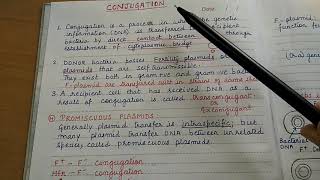 CONJUGATION
Date
1. Conjugation is a process in which the genetic
information (DNA) is transferred
bacteria by direct contact between
establishment of cytoplasmic bridge
2. Donor bacteria posses Fertility plasmids or
plasmids that are self transmissible.
They exist both in gram +ve and gram -ve bacteria
F-plasmid are transferred within in strain of same
3. A recipient cell that has received DNA as a
result of conjugation is called transconjugant
OR
Exconjugant
PROMISCUOUS PLASMIDS:
Generally plasmid transfer is intraspecific, but
many plasmid transfer DNA between unrelated
Species called promiscuous plasmids.
F+ – F- conjugation
Hfr – F- conjugation
F-plasmid
form
Bacterial
DNA